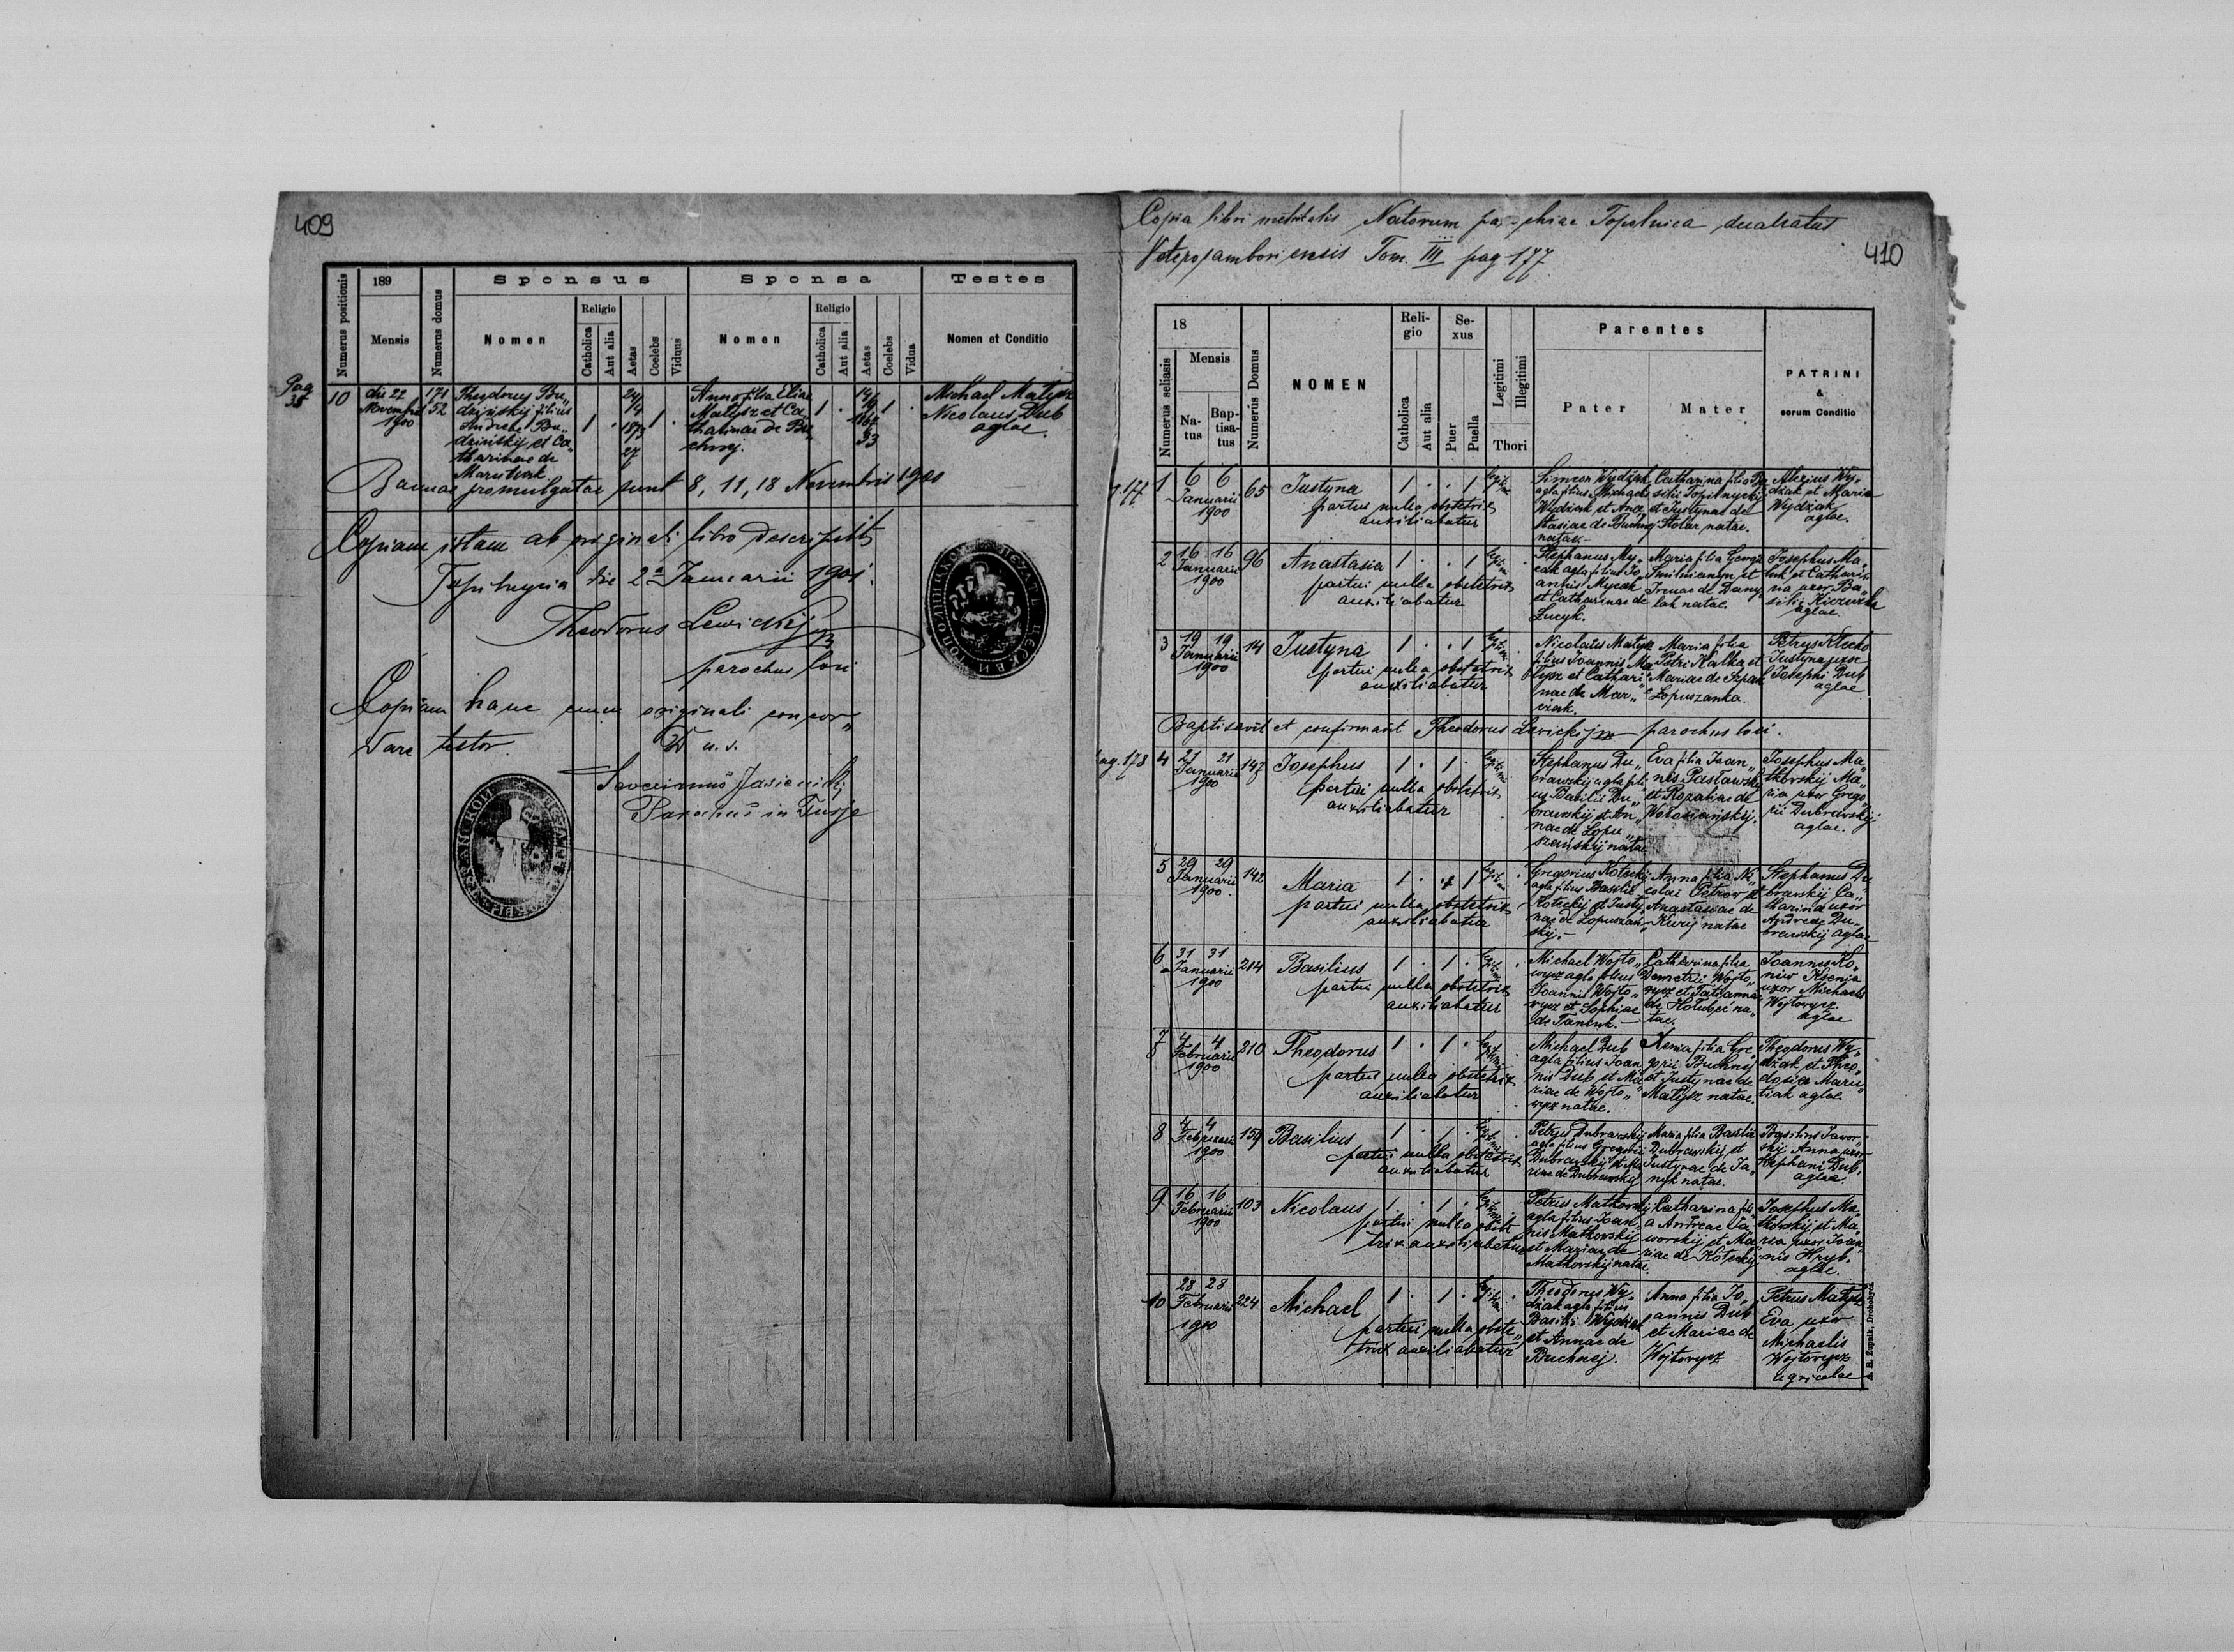 409
Numerus positionis
189
Mensis
Numerus domus
Sponsus
Nomen
Religio
Catholica
Aut alia
Aetas
Coelebs
Viduus
Sponsa
Nomen
Religio
Catholica
Aut alia
Aetas
Coelebs
Vidua
Testes
Nomen et Conditio
Pag
38
10
die 22
Novembris
1900
171
52
Theodorus Bu„
dzinskij filius
Andreae Bu„
dzinskij et Ca„
tharinae de
1 . 24/14 1873 27 1 .
Anna filia Eliae
Matysz et Ca„
tharinae de Bu
chnej.
1 . 1867 33 1 .
Michael Matysz
Nicolaus Dub
aglae.
Bannae promulgatae sunt 8, 11, 18 Novembris 1900
Copiam istam ab originali libro descripsit
die 2a Januarii 1901.
Theodorus Lewickij mp
parochus loci
Copiam hanc cum originali concor„
dare testor.
D u. s.
Parochus in Turje
410
Copia libri metricalis Natorum parochiae Topolnica decatratus
Tom. III pag 177
Numerus seliasis
18
Mensis
Natus
Baptisatus
Numerus Domus
NOMEN
Religio
Catholica
Aut alia
Sexus
Puer
Puella
Legitimi
Illegitimi
Thori
Parentes
Pater
Mater
PATRINI
&
eorum Conditio
p. 177
1
6 6
Januarii
1900
65
Justyna
partui nulla obstetrix
auxiliabatur
1 . . 1
Simeon Wydzak
agla filius Michaelis
Wydzak et Ana„
stasiae de Buchnej
natae
Catharina filia Ba
silii Topilnyckij
et Justynae de
Stolar natae.
Alexius Wy„
dzak et Maria
Wydzak
aglae.
2
16 16
Januarii
1900
96
Anastasia
partui nulla obstetrix
auxiliabatur
1 . . 1
Stephanus My„
cak agla filius Jo„
annis Mycak
et Catharinae de
Lucyk.
Maria filia Georgii
et
Irenae de Dany„
lak natae.
Josephus Ma„
luk et Cathari„
na uxor Ba„
silii
aglae
3
19 19
Januarii
1900
14
Justyna
partui nulla obstetrix
auxiliabatur
1 . . 1
Nicolaus Matysz
filius Joannis Ma„
tysz et Cathari„
nae de Mar„
czak.
Maria filia
Petri Kalka et
Mariae de Szpak
Lopuszanka.
Petrus Klecko
Justyna uxor
Josephi Dub
aglae
Baptisavit et confirmavit Theodorus Lewickij mp parochus loci.
pag. 178
4
21 21
Januarii
1900
147
Josephus
partui nulla obstetrix
auxiliabatur
1 . 1 .
Stephanus Du„
brawskij agla fili„
us Basilii Du„
brawskij et An„
nae de Lopu„
szanskij natae
Eva filia Joan„
nis Pastawskij
et Rozaliae de
Wolosianskij.
Josephus Ma„
tkovskij Ma„
ria uxor Grego„
rii Dubravskij
aglae.
5
29 29
Januarii
1900
142
Maria
partui nulla obstetrix
auxiliabatur
1 . . 1
Gregorius Kotockij
agla filius Basilii
Kotockij et Justy„
nae de Lopuszan„
skij.
Anna filia Ni„
colai Petrow et
Anastasiae de
Kurij natae
Stephanus Du„
bravskij Ca„
tharina uxor
Andreae Du„
brawskij aglae
6
31 31
Januarii
1900
214
Basilius
partui nulla obstetrix
auxiliabatur
1 . 1 .
Michael Wojto„
wycz agla filius
Joannis Wojto„
wycz et Sophiae
de Tanczuk.
Catharina filia
Demetrii Wojto„
wycz et Tatiannae
de Holubec na„
tae.
Joannes Ko„
niw Ksenia
uxor Michaelis
Wojtowycz
aglae
7
4 4
Februarii
1900
210
Theodorus
partui nulla obstetrix
auxiliabatur
1 . 1 .
Michael Dub
agla filius Joan„
nis Dub et Ma„
riae de Wojto„
wycz natae.
Xenia filia Gre„
gorii Buchnej
et Justynae de
Matysz natae.
Theodorus Wy„
dzak et Theo„
dosia Maru„
tiak aglae.
8
4 4
Februarii
1900
159
Basilius
partui nulla obstetrix
auxiliabatur
1 . 1 .
Petrus Dubrawskij
agla filius Gregorii
Dubrawskij et Ma„
riae de Dubrawskij
Maria filia Basilii
Dubrawskij et
Justynae de Ja„
nyk natae.
Basilius Jawor„
skij Anna uxor
Stephani Dub.
aglae.
9
16 16
Februarii
1900
103
Nicolaus
partui nulla obste
trix auxiliabatur
1 . 1 .
Petrus Matkovskij
agla filius Joan„
nis Matkovskij
et Mariae de
Matkovskij natae.
Catharina fili„
a Andreae Ja„
worskij et Ma„
riae de Kotockij
Josephus Ma„
tkovskij et Ma„
ria uxor Joan„
nis Hryb.
aglae.
10
28 28
Februarii
1900
224
Michael
partui nulla obste„
trix auxiliabatur
1 . 1 .
Theodorus Wy„
dzak agla filius
Basilii Wydzak
et Annae de
Buchnej.
Anna filia Jo„
annis Dub
et Mariae de
Wojtowycz
Petrus Matysz
Eva uxor
Michaelis
Wojtowycz
agricolae
A. H. Zupnik, Drohobycz